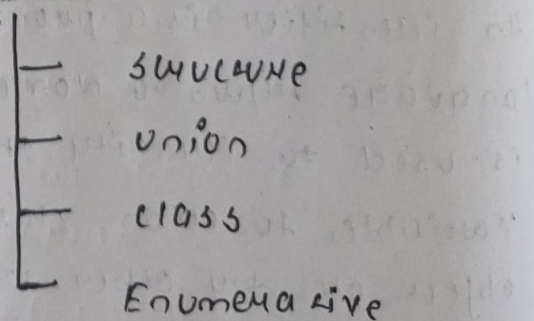 structure
union
class
Enumerative